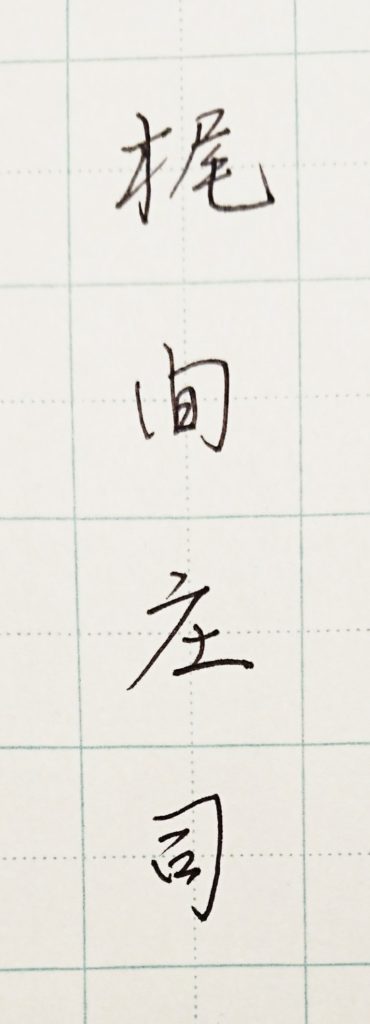 梶間庄司